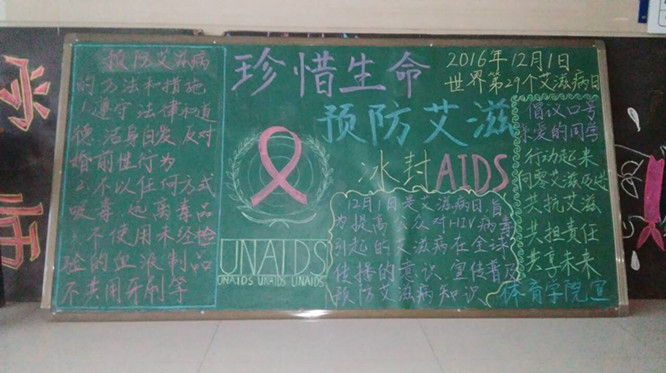 预防艾滋病
的方法和措施
1.遵守法律和道
德 洁身自爱 反对
婚前性行为
2.不以任何方式
吸毒 远离毒品
3.不使用未经检
验的血液制品
不共用牙刷等
珍惜生命
预防艾滋
冰封AIDS
UNAIDS
UNAIDS UNAIDS UNAIDS
12月1日是艾滋病日旨
为提高公众对HIV病毒
引起的艾滋病在全球
传播的意识 宣传普及
预防艾滋病知识
2016年12月1日
世界第29个艾滋病日
倡议口号
亲爱的同学
行动起来
向零艾滋迈进
共抗艾滋
共担责任
共享未来
体育学院宣
师